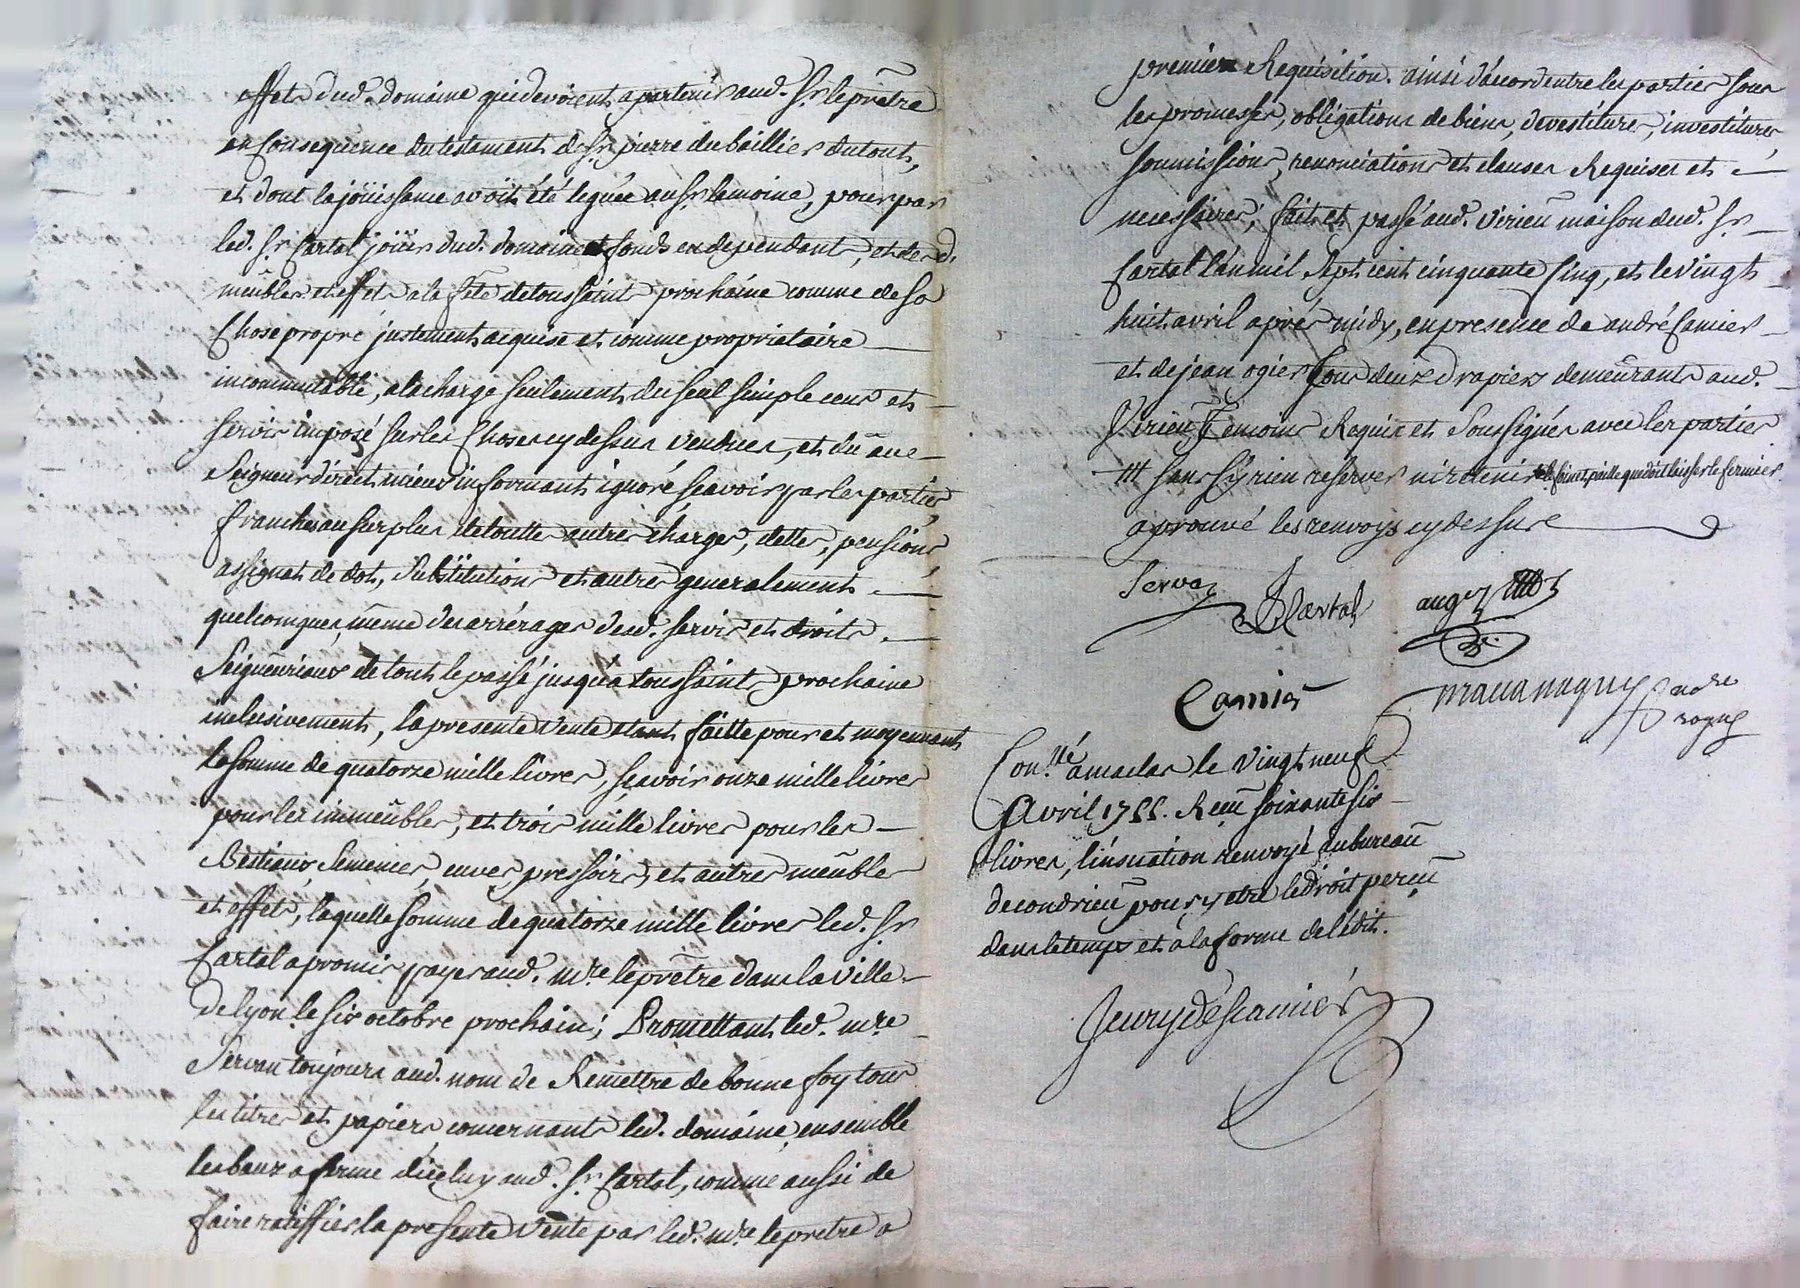 effets dud. domaine qui devoient apartenir aud. Sr. leprêtre
en Consequence du testament de Sr. pierre dubaillier dutout,
et dont la joüissance avoit été leguée au Sr. lemoine, pour par
led. Sr. Cartal joüir dud. domaine et fonds en dependant, et desd.
meubles et effets a la fête de toussaint prochaine comme de sa
Chose propre justement acquise et comme proprietaire
incommutable, a la charge seulement du seul simple cens et
servis imposé sur les Choses cy dessus vendües, et dû au
Seigneur direct mieux informant ignoré sçavoir par les parties,
franches au surplus de toutte autres charges, dettes, pensions,
assignat de dot, substitutions et autres generalement
quelconques, même des arrérages desd. servis et droits
Seigneuriaux de tout le passé jusqu'a toussaint prochaine
inclusivement, la presente vente etant faitte pour et moyennant
la somme de quatorze mille livres, sçavoir onze mille livres
pour les immeubles, et trois mille livres pour les
Bestiaux, semences, cuves pressoirs, et autres meubles
et effets, laquelle somme de quatorze mille livres led. Sr.
Cartal a promis payer aud. mre. leprêtre dans la ville
de lyon le six octobre prochain; Promettant led. mre.
Servan toujours aud. nom de Remettre de bonne foy tous
les titres et papiers concernants led. domaine, ensemble
les baux a ferme d'icelluy aud. Sr. Cartal, comme aussi de
faire ratiffier la presente vente par led. mre. leprêtre a
premiere Requisition. ainsi d'acord entre les parties sous
les promesses, obligations de biens, devestitures, investitures
soumissions, renonciations et clauses Requises et
necessaires; fait et passé aud. virieu maison dud. Sr.
Cartal l'an mil sept cent cinquante cinq, et le vingt
huit avril après midy, en presence de andré Camier
et de jean ogier tous deux drapiers demeurants aud.
Virieu Temoins Requis et Soussignés avec les parties
sans y rien reserver ni retenir le foin et paille que doit laisser le fermier
aprouvé les renvoys cy dessus
Servan
Cartal
Camier
Con.llé a maclas le vingt neuf
Avril 1755. Reçu soixante six
livres, l'insinuation renvoyé au bureau
de condrieu pour y etre le droit perçu
dans le temps et a la forme de l'édit.